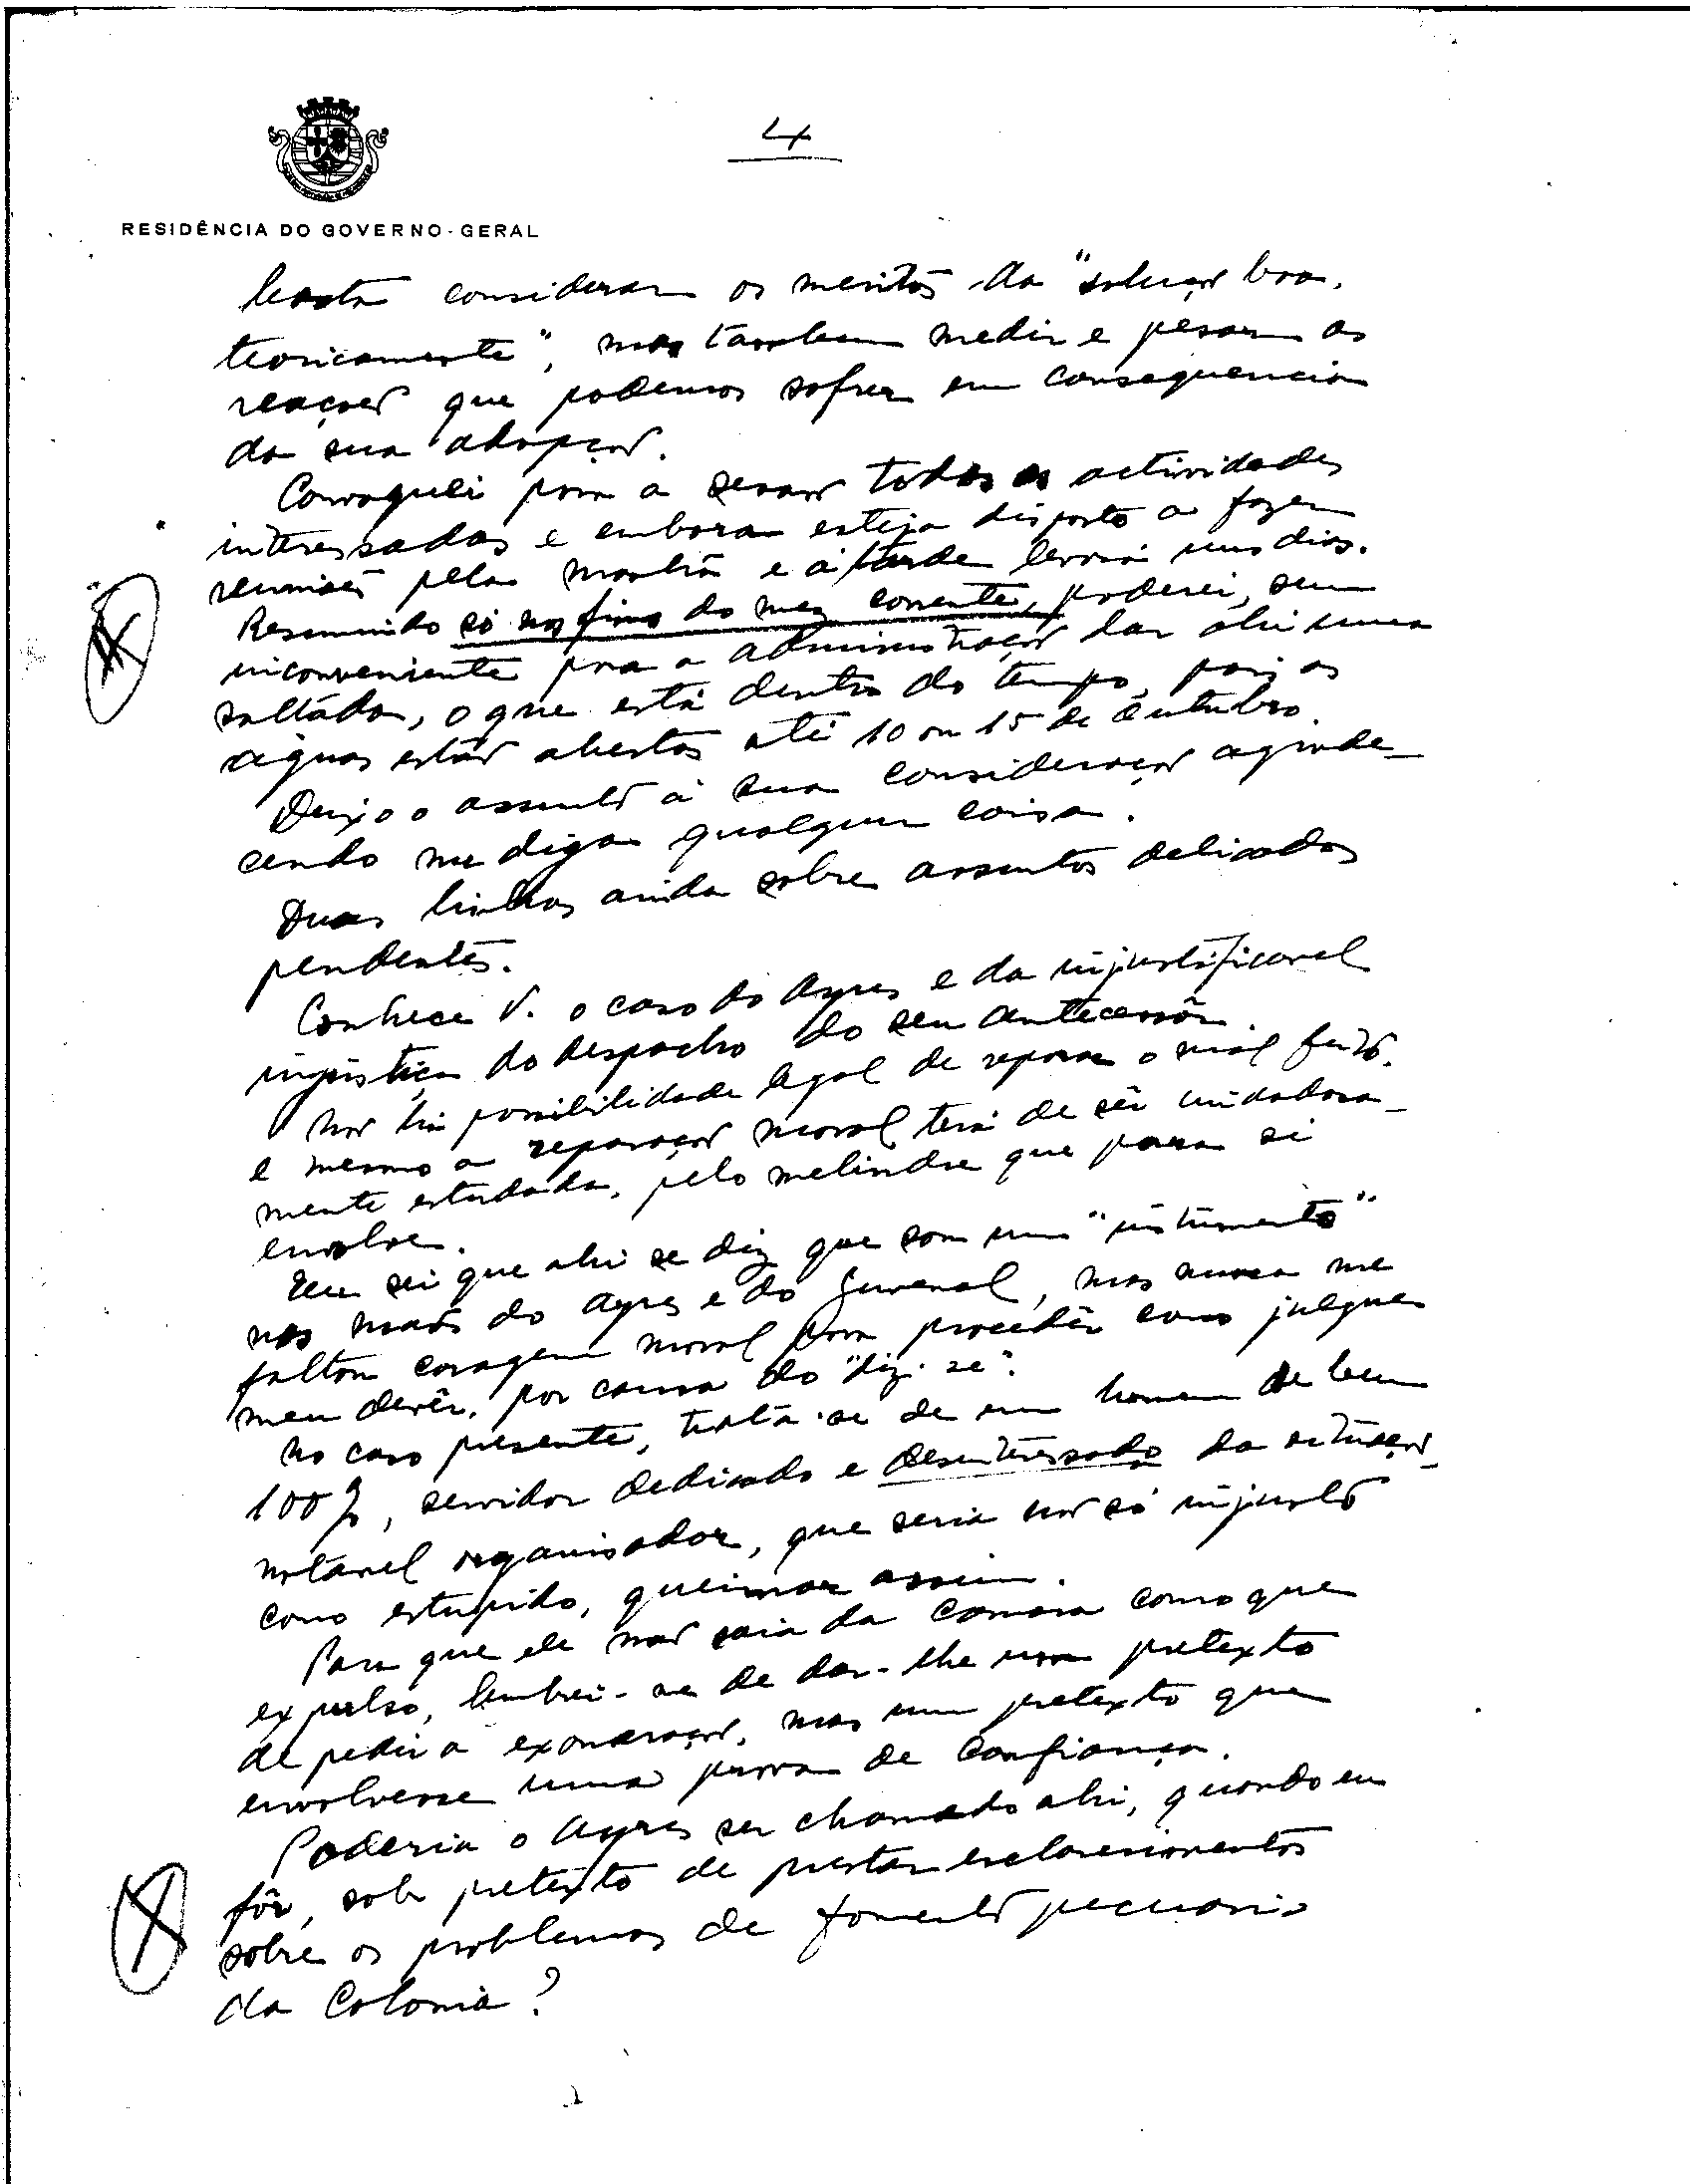 4
RESIDÊNCIA DO GOVERNO-GERAL
basta considerar os meritos da "solução boa,
teoricamente", mas tambem medir e pesar as
reações que podemos sofrer em consequencia
da sua adopção.
Convoquei para a sessão todas as actividades
interessadas e embora esteja disposto a fazer
reuniões pela manhã e á tarde levará uns dias.
Resumindo só nos fins do mez corrente, poderei, sem
inconveniente para a administração dar ahi uma
saltada, o que está dentro do tempo, pois as
aguas estão abertas até 10 ou 15 de Outubro.
Deixo o assunto á sua consideração agrade-
cendo me diga qualquer coisa.
Duas linhas ainda sobre assuntos delicados
pendentes.
Conhece V. o caso do Ayres e da injustificavel
injustiça do despacho do seu antecessôr.
Não há possibilidade legal de reparar o mal feito.
e mesmo a reparação moral terá de sêr cuidadosa-
mente estudada, pelo melindre que para si
envolve.
Eu sei que ahi se diz que sou um "instrumento"
nas mãos do Ayres e do Juvenal, mas nunca me
faltou coragem moral para procedêr como julgue
meu devêr, por causa do "diz-se".
No caso presente, trata-se de um homem de bem
100%, servidor dedicado e desinteressado da situação,
notavel organisador, que seria não só injusto
como estupido, queimar assim.
Para que ele não saia da Camara como que
expulso, lembrei-me de dar-lhe um pretexto
de pedir a exoneração, mas um pretexto que
envolvesse uma prova de confiança.
Poderia o Ayres ser chamado ahi, quando eu
fôr, sob pretexto de prestar esclarecimentos
sobre os problemas de fomento pecuario
da Colonia?